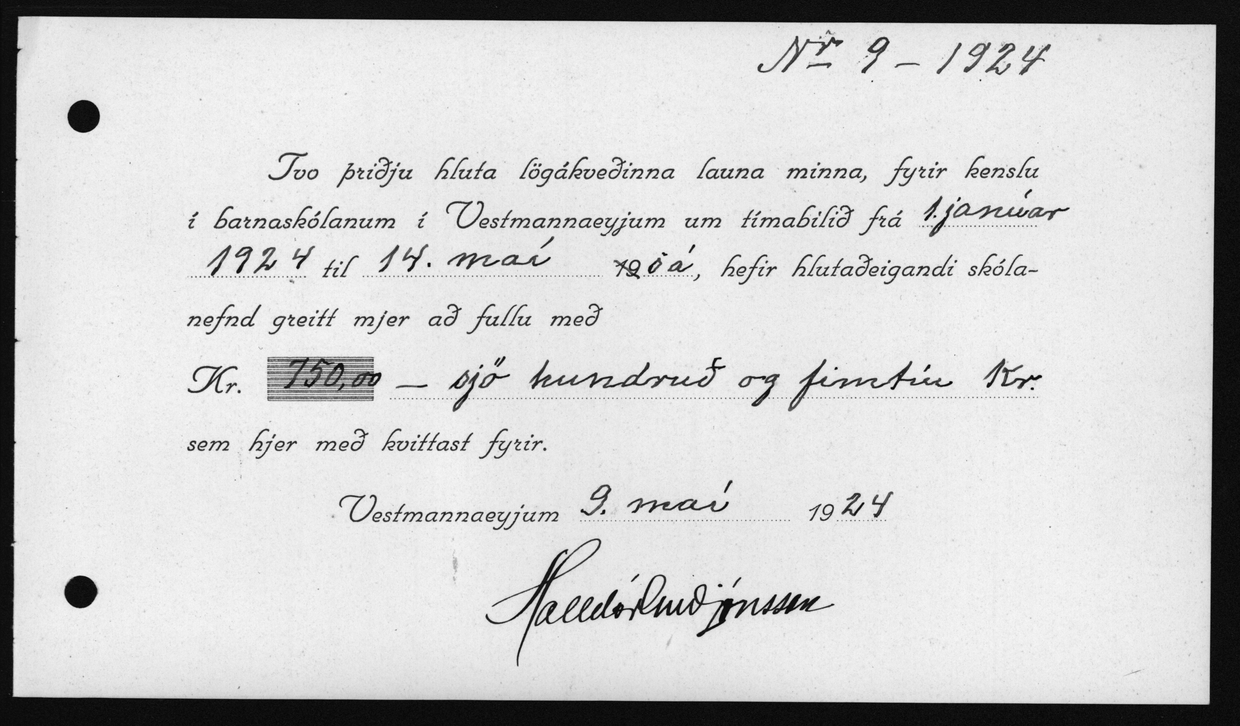 Nr 9 - 1924
Tvo þriðju hluta lögákveðinna launa minna, fyrir kenslu
í barnaskólanum í Vestmannaeyjum um tímabilið frá 1. janúar
1924 til 14. maí 19 s á, hefir hlutaðeigandi skóla-
nefnd greitt mjer að fullu með
Kr. 750,00 — sjö hundruð og fimtíu Kr.
sem hjer með kvittast fyrir.
Vestmannaeyjum 9. maí 1924
Halldór Guðjónsson